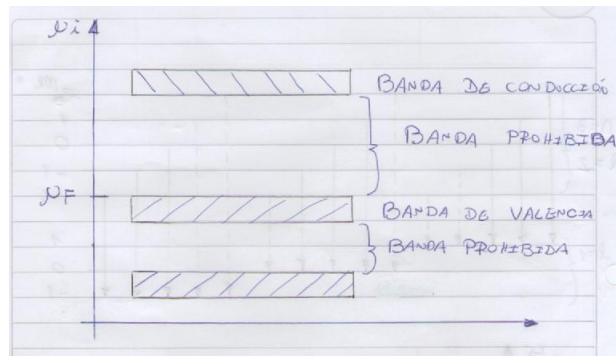 Ni
BANDA DE CONDUCCIÓ
BANDA PROHIBIDA
NF
BANDA DE VALENCIA
BANDA PROHIBIDA